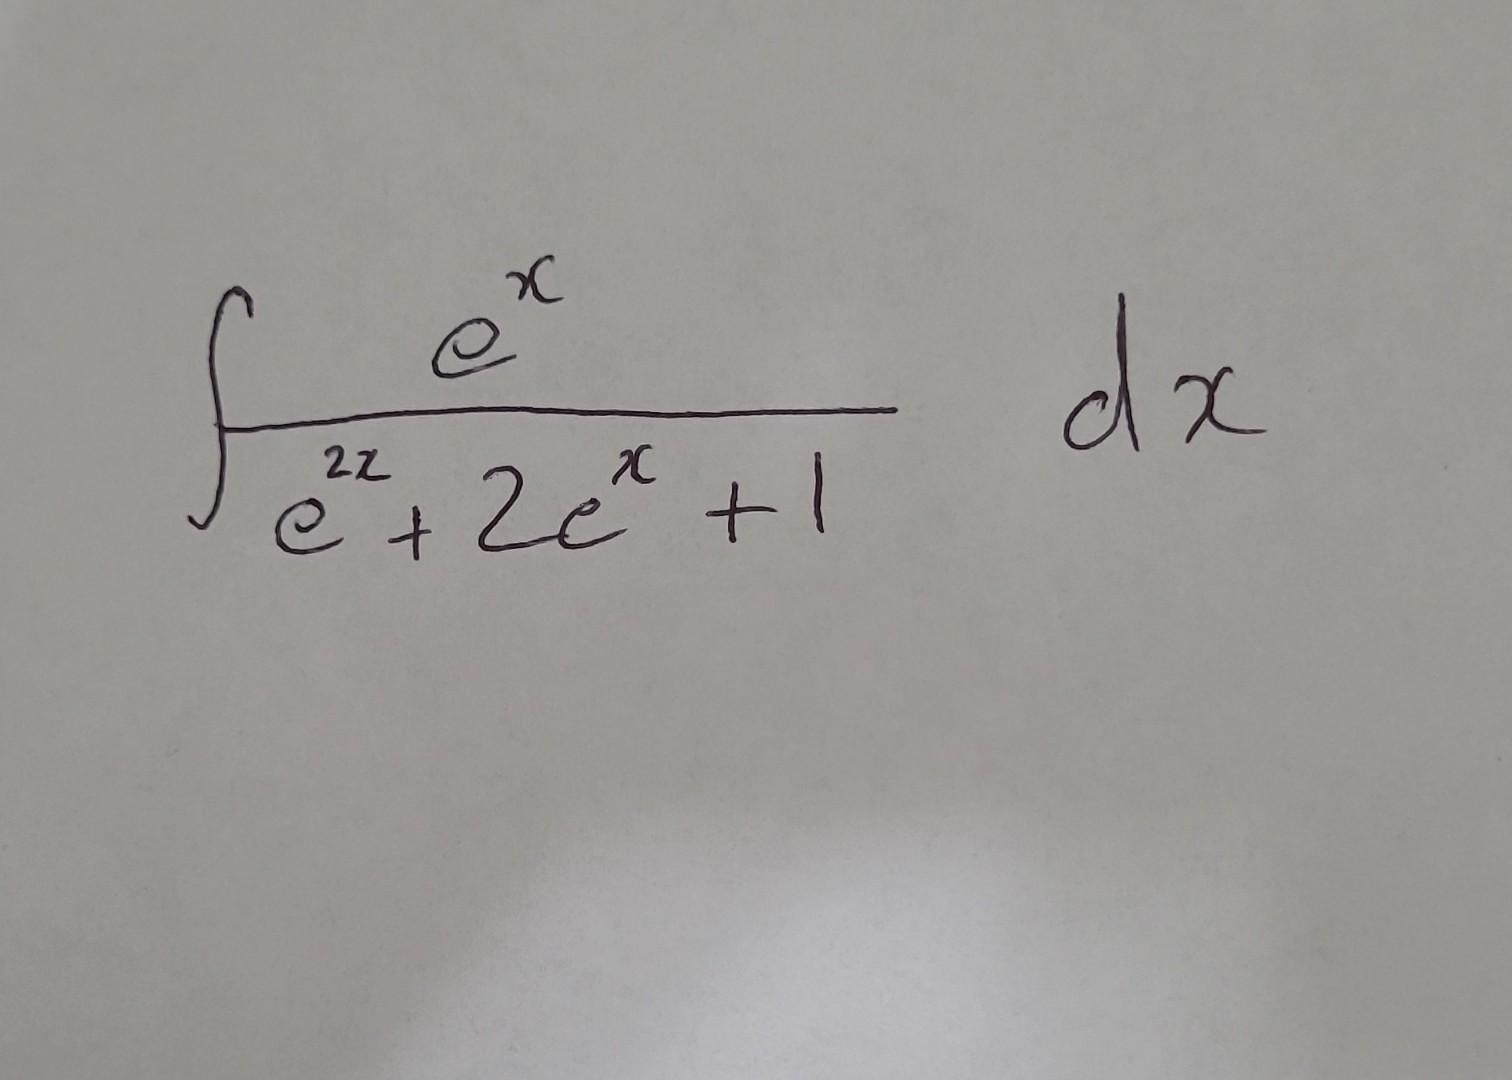 ∫ e^x / (e^{2x} + 2e^x + 1) dx